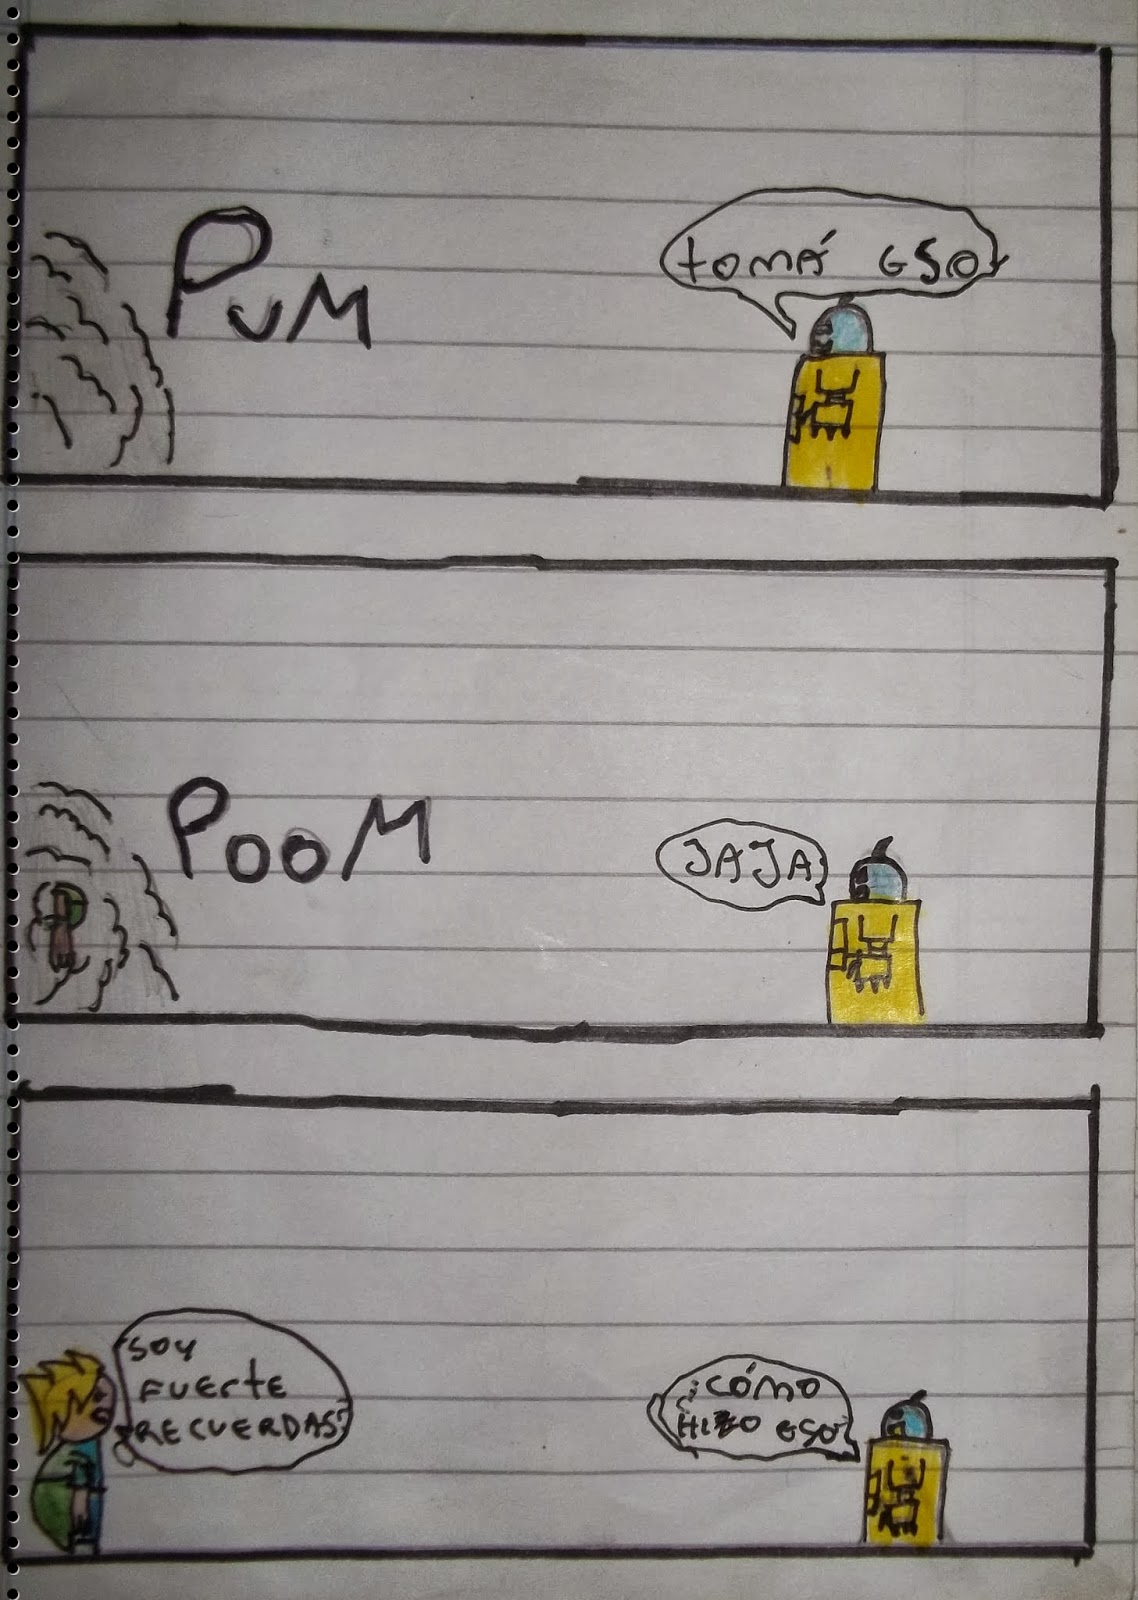 PUM
tomá eso
POOM
JAJA
SOY
FUErtE
RECUERDAS?
¡CÓMO
HIZO eso